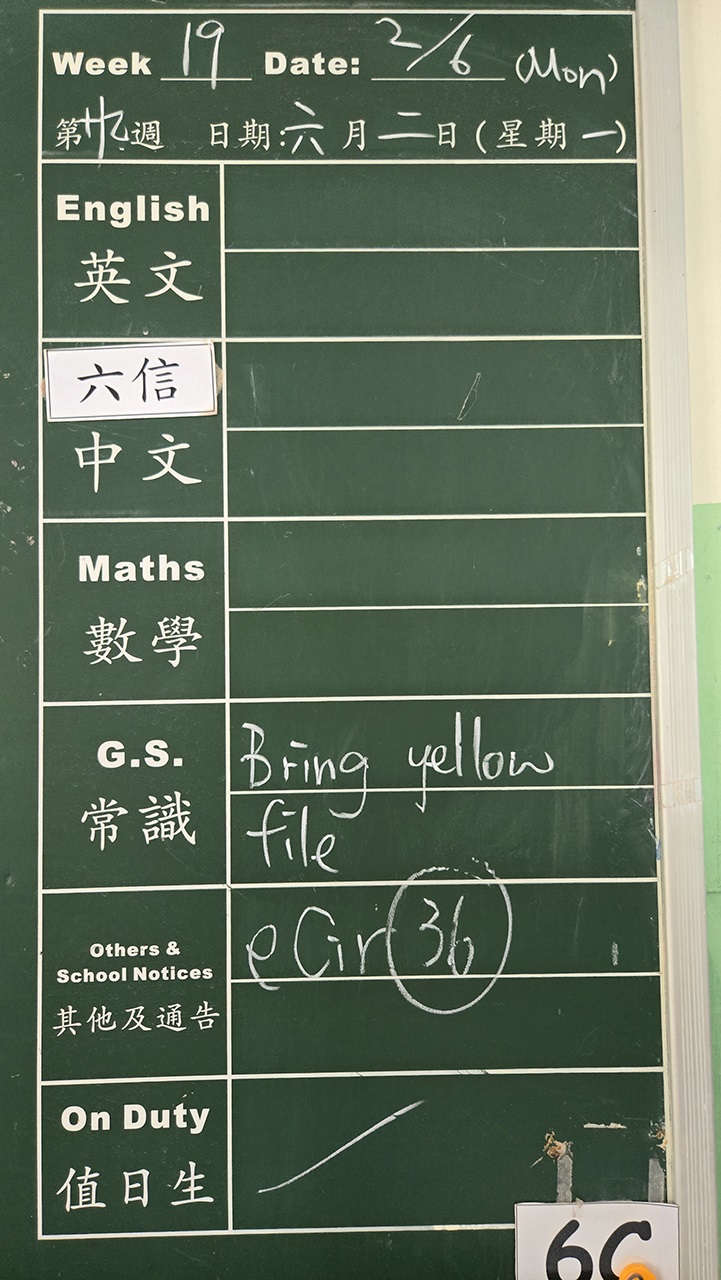 Week 19 Date: 2/6 (Mon)
第十九週 日期:六月二日(星期一)
English
英文
六信
中文
Maths
數學
G.S.
常識
Bring yellow
file
Others &
School Notices
其他及通告
eCir 36
On Duty
值日生
6C